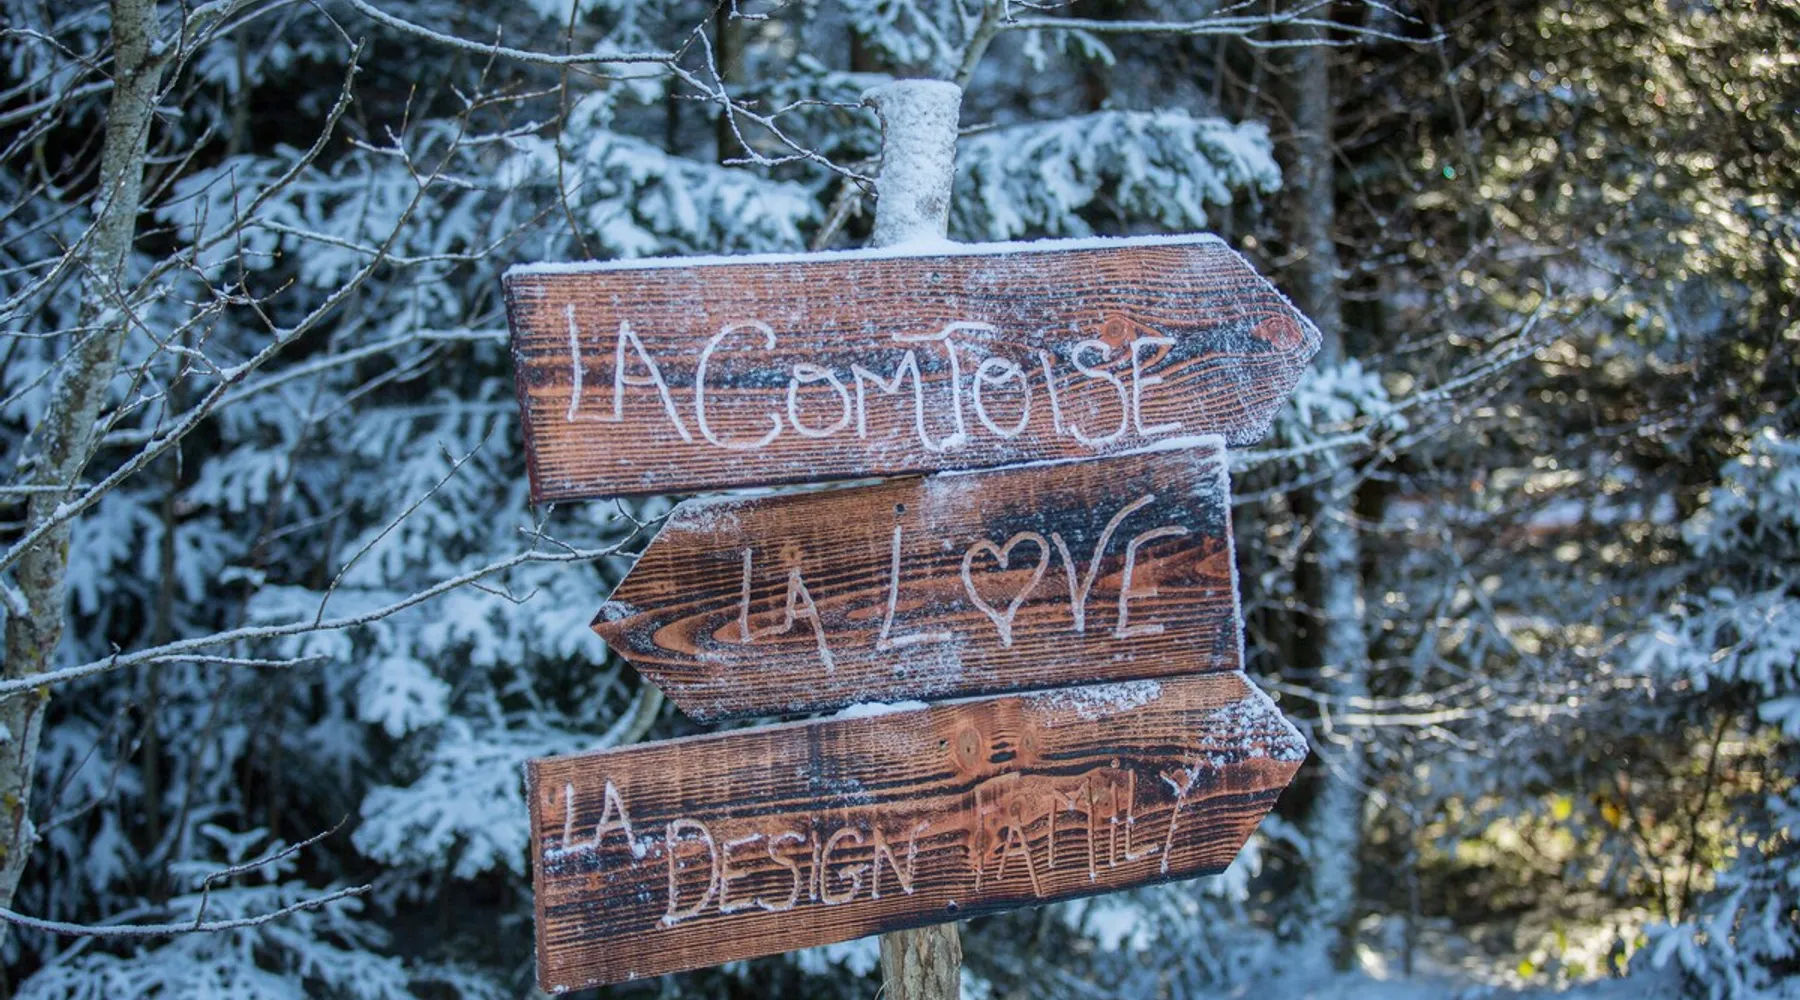 LA COMTOISE
LA LOVE
LA DESIGN FAMILY